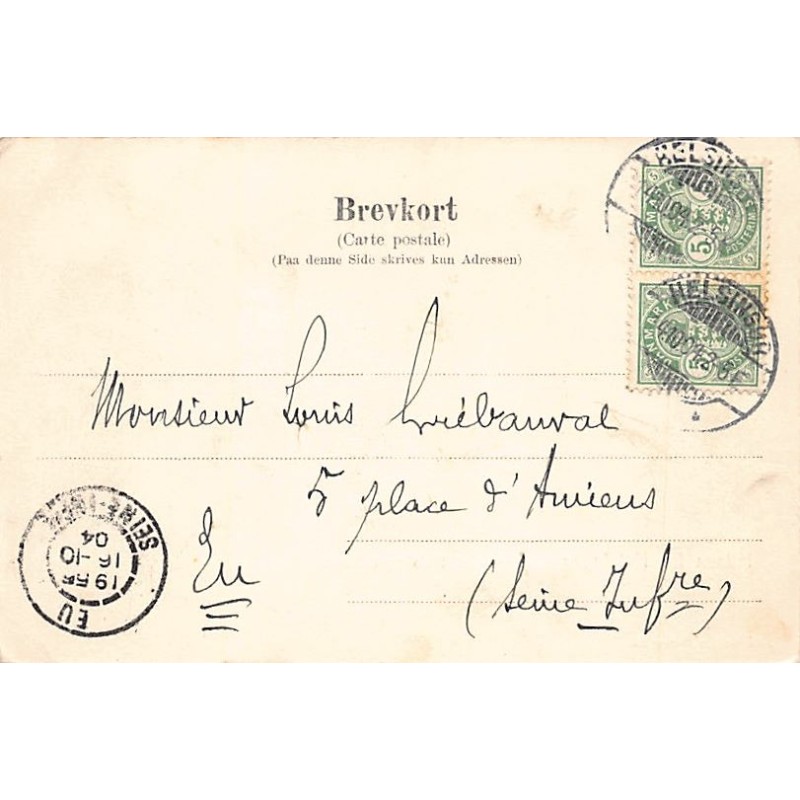 Brevkort
(Carte postale)
(Paa denne Side skrives kun Adressen)
HELSINGØR
5
HELSINGØR
5
Monsieur Louis Griébauval
5 place d'Amiens
Eu
(Seine Infre)
SEINE-INFRE
19 55
16-10
04
EU